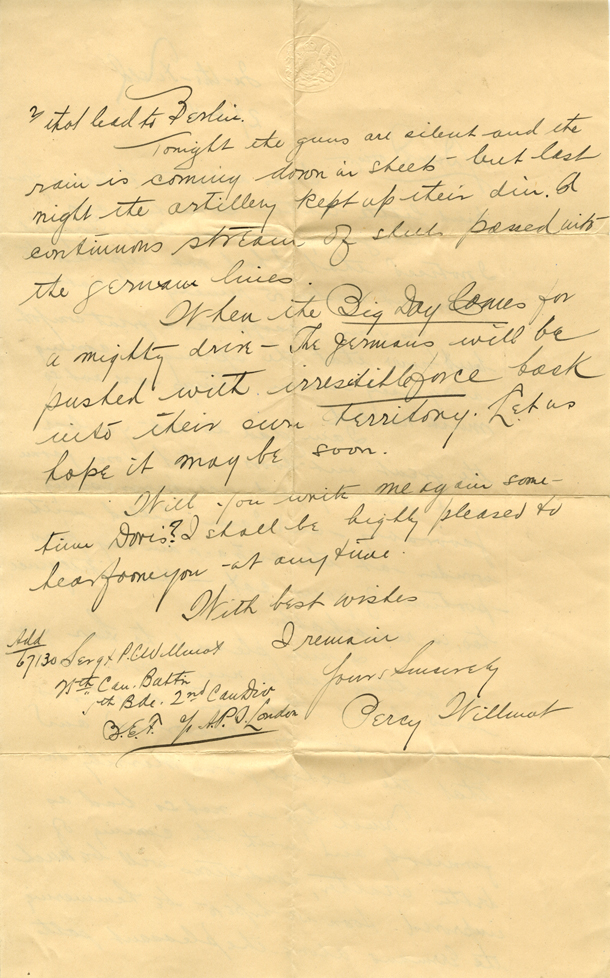 that lead to Berlin.
Tonight the guns are silent and the
rain is coming down in sheets - but last
night the artillery kept up their din. A
continuous stream of shells passed into
the german lines.
When the Big Day Comes for
a mighty drive - The germans will be
pushed with irresitible force back
into their own territory. Let us
hope it may be soon.
Will you write me again some-
time Doris? I shall be highly pleased to
hear from you - at any time.
With best wishes
I remain
Yours Sincerely
Percy Willmot
Add
67130 Sergt P.C. Willmot
25th Can. Battn
5th Bde. 2nd Can Div
B.E.F. % A.P.O. London